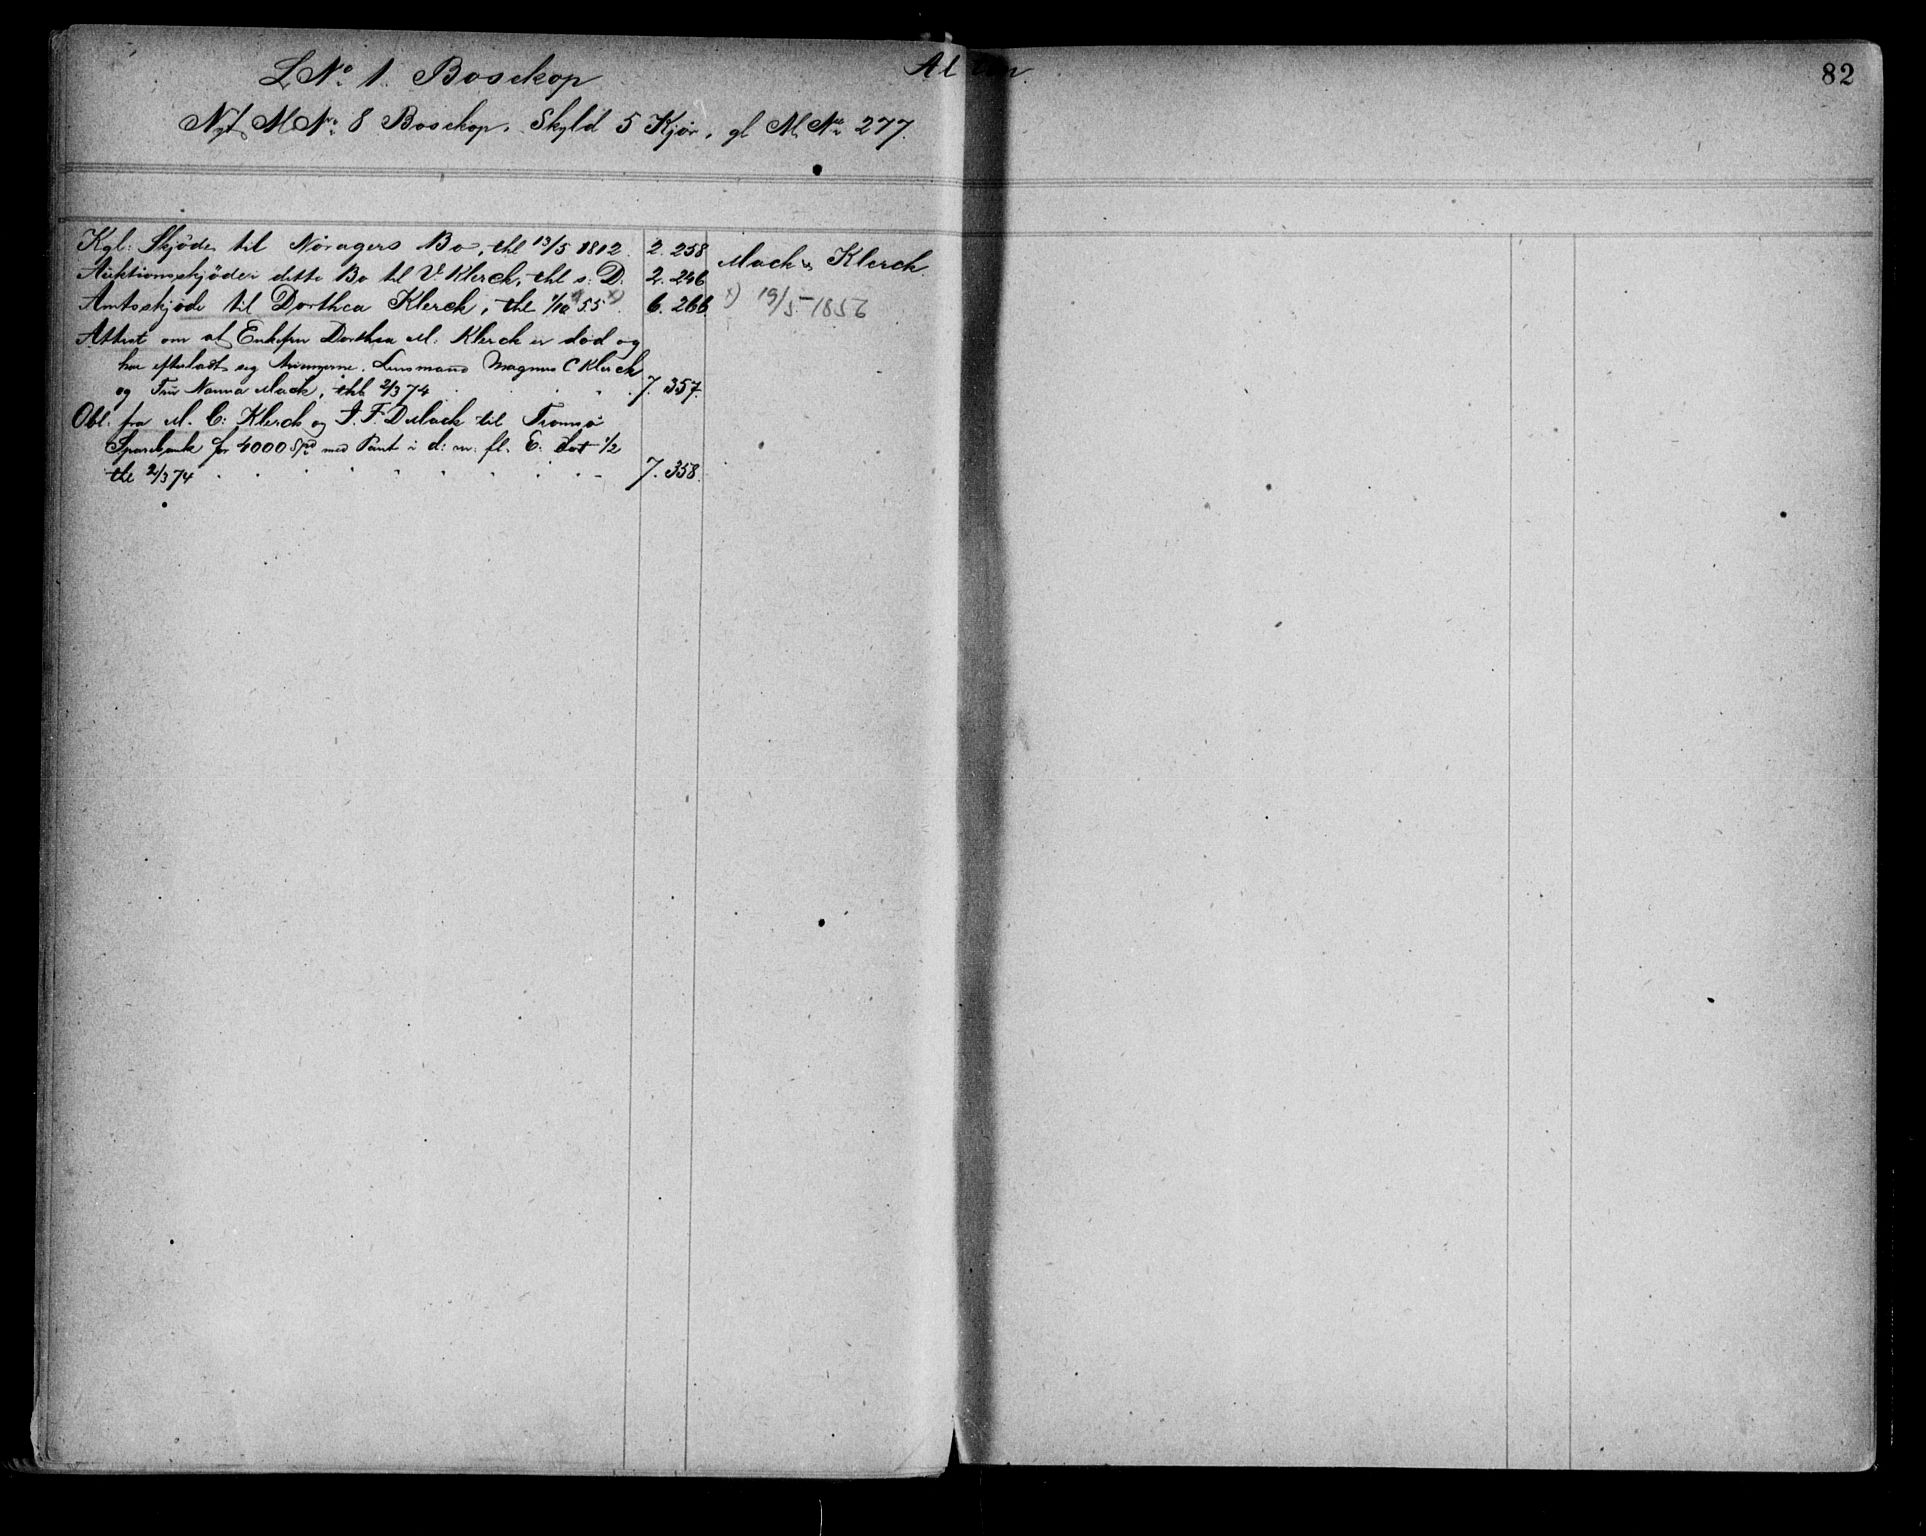 Alten.
82
L№ 1. Bosekop
Nyt M№ 8 Bosekop. Skyld 5 Kjør, gl M.№ 277.
Kgl: Skjøde til Nøragers Bo, thl 13/5 1812. 2. 258
Auktionsskjøde i dette Bo til V. Klerck, thl s: D. 2. 246
Amtsskjøde til Dorthea Klerck, thl 1/10 55 x). 6. 266.
Mack & Klerck.
x) 19/5-1856
Attest om at Enkefru Dorthea M. Klerck er død og
har efterladt sig Arvingerne. Lensmand Magnus C Klerck
og Fru Nanna Mack, thl 2/3 74 7. 357.
Obl: fra M. C: Klerck og J. F. D Mack til Tromsø
Sparebank for 4000 Spd med Pant i d: m: fl. E. dat 1/2
thl 2/3 74 7. 358.